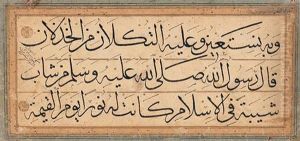 وبه نستعين وعليه التكلان من الخذلان
قال رسول الله صلى الله عليه وسلم من شاب
شيبة في الاسلام كانت له نورا يوم القيمة